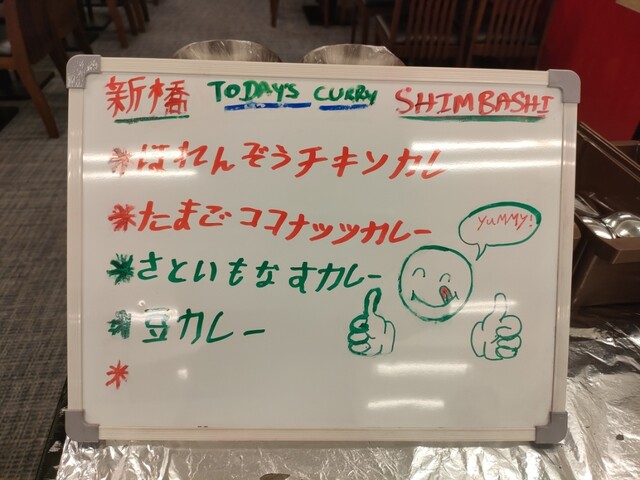 新橋 TODAY'S CURRY SHIMBASHI
*ほれんぞうチキンカレ
*たまごココナッツカレー
YUMMY!
*さといもなすカレー
*豆カレー
*